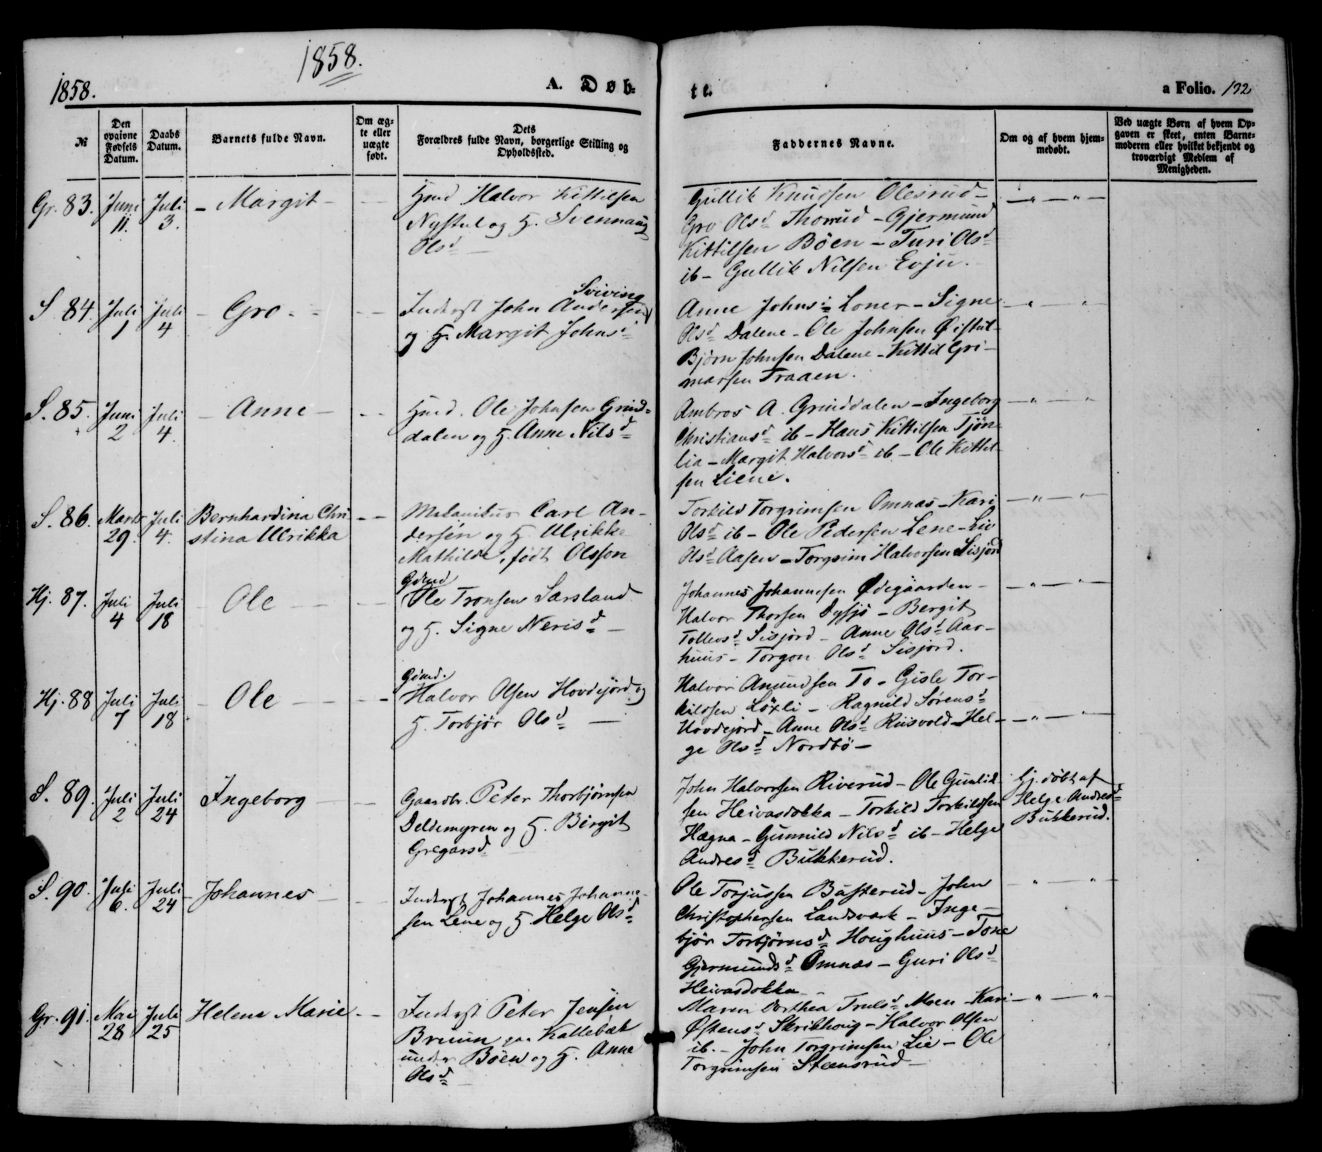 1858.
1858.
A. Døb-
te.
a Folio. 192
№
Den opgivne Fødsels Datum.
Daabs Datum.
Barnets fulde Navn.
Om ægte eller uægte født.
Dets Forældres fulde Navn, borgerlige Stilling og Opholdssted.
Faddernes Navne.
Om og af hvem hjemmedøbt.
Ved uægte Børn af hvem Opgaven er skeet, enten Barnemoderen eller hvilket bekjendt og troværdigt Medlem af Menigheden.
Gr. 83. Juni 11. Juli 3. Margit
Hmd Halvor Kittilsen
Nystul og H. Svennaug
Olsd
Gullik Knudsen Olesrud -
Gro Olsd Thorrud - Gjermund
Kittilsen Böen - Turi Olsd
ib - Gullik Nilsen Evju.
S. 84 Juli 1 Juli 4 Gro
Sviving
Inderst John Andersen
og H. Margit Johnsd
Anne Johnsd Loner - Signe
Olsd Dalene - Ole Johnsen Öistul -
Björn Johnsen Dalene - Kittil Gri-
marsen Traaen.
S. 85. Juni 2 Juli 4. Anne
Hmd. Ole Johnsen Grind-
dalen og H. Anne Nilsd
Ambros A. Grinddalen - Ingeborg
Christiansd ib - Hans Kittilsen Tjön-
lia - Margit Halvorsd ib - Ole Kittil-
sen Liene.
S. 86. Marts 29. Juli 4. Bernhardina Chri
stina Ulrikka
Carl An-
dersén og H. Ulrikke
Mathilde, født Olsson
Torkild Torgrimsen Omnæs - Kari
Olsd ib - Ole Pedersen Lene - Liv
Olsd Aasen - Torgrim Halvorsen Sisjord
Hj. 87. Juli 4 Juli 18 Ole
Gdmd
Ole Tronsen Særsland
og H. Signe Nerisd
Johannes Johannesen Ödegaarden -
Halvor Thorsen Dysjö - Bergit
Tollevsd Sisjord - Anne Olsd Aar-
huus - Torgon Olsd Sisjord.
Hj. 88 Juli 7 Juli 18. Ole
Gdmd.
Halvor Olsen Hovdejord og
H. Torbjör Olsd
Halvor Amundsen To - Gisle Tor-
kildsen Löxli - Ragnild Sörensd
Hovdejord - Anne Olsd Riisvold - Hel-
ge Olsd Nordbö -
S. 89. Juli 2 Juli 24 Ingeborg
Gaardbr. Peter Thorbjörnsen
Deldemyren og H. Birgit
Gregarsd
John Halvorsen Riverud - Ole Gunlik
sen Heivasdokka - Torkild Torkildsen
Hægna - Gunnild Nilsd ib - Helge
Andresd Bukkerud.
Hj. döbt af
Helge Andresd
Bukkerud.
S. 90. Juli 6. Juli 24 Johannes
Inderst Johannes Johanne-
sen Lene og H. Helge Olsd
Ole Torjussen Busterud - John
Christophersen Landsværk - Inge-
björ Torbjörnsd Houghuus - Tone
Gjermundsd Omnæs - Guri Olsd
Heivasdokka
Gr. 91. Mai 28 Juli 25 Helene Marie
Inderst Peter Jensen
Bruun paa Kallebæk
under Böen og H. Anne
Olsd
Maren Dorthea Trulsd Moen - Kari
Östensd Skrikhoug - Halvor Olsen
ib. - John Torgrimsen Lie - Ole
Torgrimsen Stensrud -